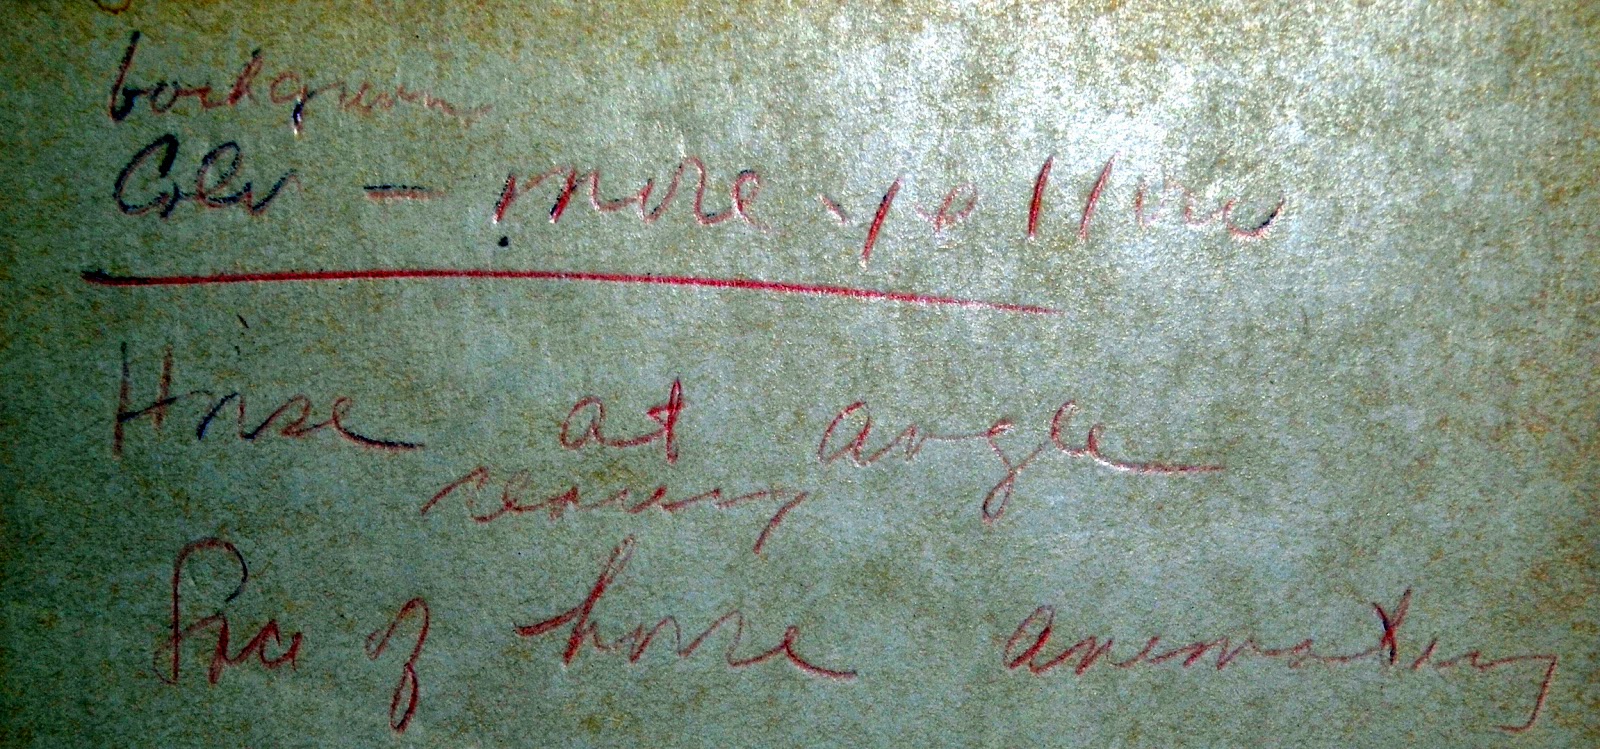 background
Color - more yellow
Horse at angle
rearing
Face of horse animating